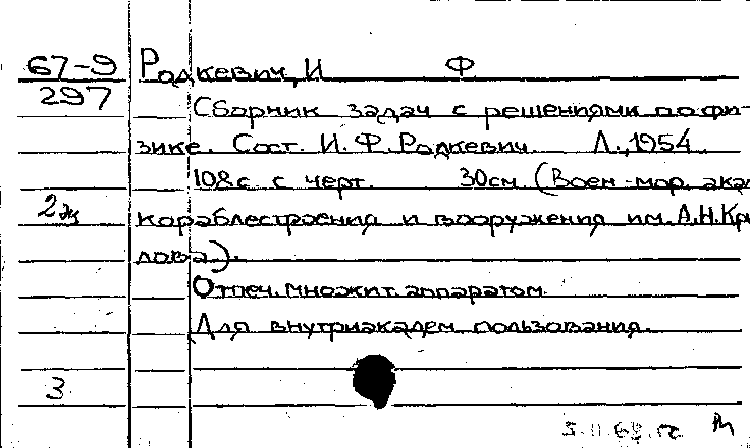 67-9 Радкевич, И Ф
297
Сборник задач с решениями по фи-
зике. Сост. И. Ф. Радкевич. Л., 1954.
108 с. с черт. 30см. (Воен-мор. акад
2эк кораблестроения и вооружения им. А.Н.Кры
лова).
Отпеч. множит. аппаратом.
Для внутриакадем. пользования.
3